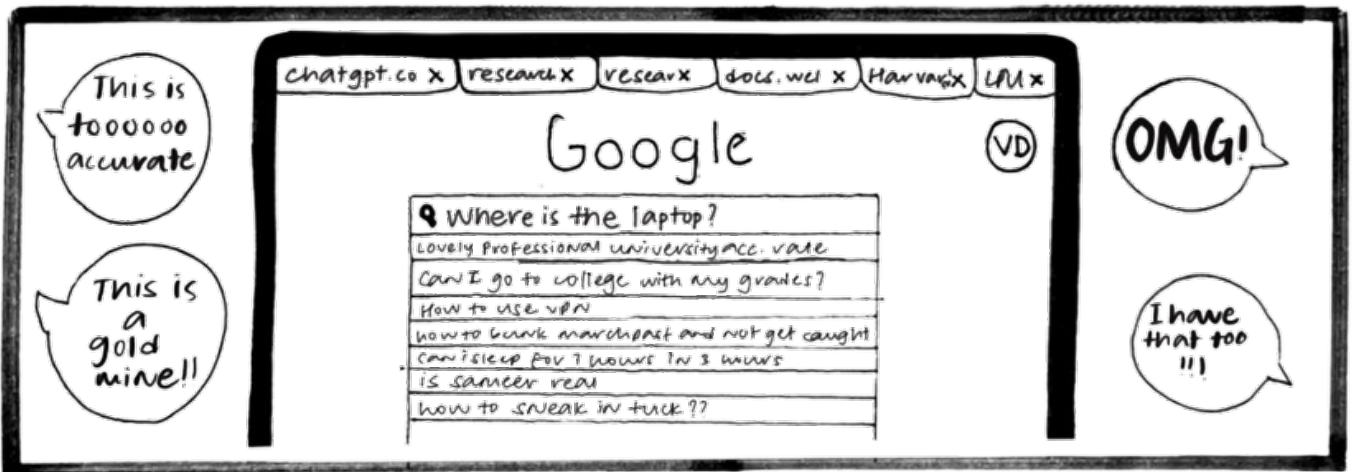 This is
toooooo
accurate
This is
a
gold
mine!!
chatgpt.co x
research x
resear x
docs.wel x
Harvard x
LPU x
Google
VD
Where is the laptop?
Lovely Professional university acc. rate
Can I go to college with my grades?
How to use VPN
how to bunk marchpast and not get caught
can i sleep for 7 hours in 3 hours
is sameer real
how to sneak in tuck??
OMG!
I have
that too
!!!